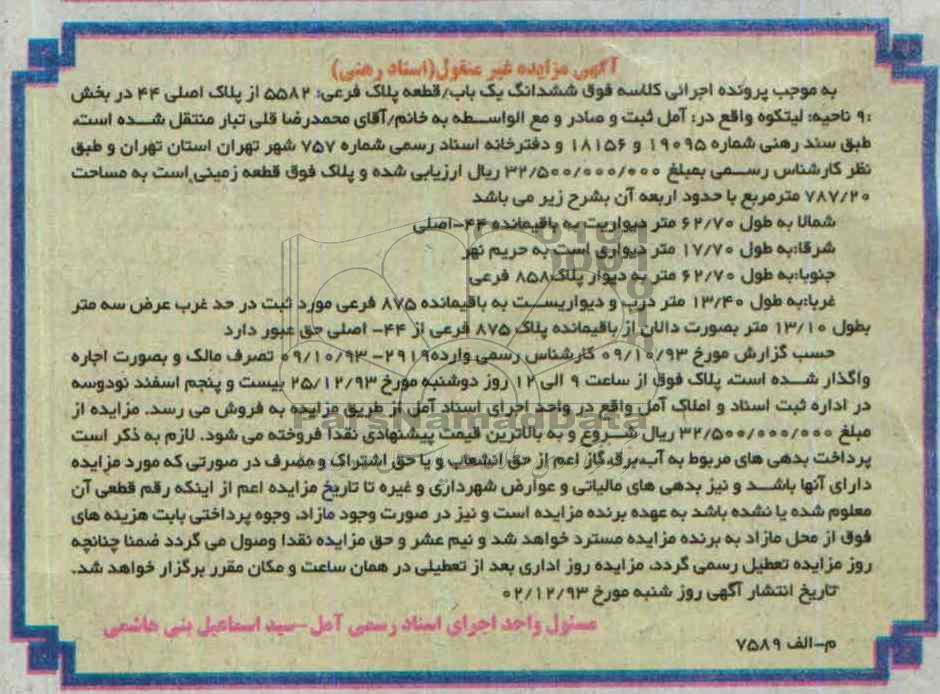 آگهی مزایده غیر منقول(اسناد رهنی)
به موجب پرونده اجرائی کلاسه فوق ششدانگ یک باب/قطعه پلاک فرعی: ۵۵۸۲ از پلاک اصلی ۴۴ در بخش
:۹ ناحیه: لیتکوه واقع در: آمل ثبت و صادر و مع الواسطه به خانم/آقای محمدرضا قلی تبار منتقل شده است،
طبق سند رهنی شماره ۱۹۰۹۵ و ۱۸۱۵۶ و دفترخانه اسناد رسمی شماره ۷۵۷ شهر تهران استان تهران و طبق
نظر کارشناس رسمی بمبلغ ۳۲/۵۰۰/۰۰۰/۰۰۰ ریال ارزیابی شده و پلاک فوق قطعه زمینی است به مساحت
۷۸۷/۲۰ مترمربع با حدود اربعه آن بشرح زیر می باشد
شمالا به طول ۶۲/۷۰ متر دیواریت به باقیمانده ۴۴-اصلی
شرقا:به طول ۱۷/۷۰ متر دیواری است به حریم نهر
جنوبا:به طول ۶۲/۷۰ متر به دیوار پلاک۸۵۸ فرعی
غربا:به طول ۱۳/۴۰ متر درب و دیواریست به باقیمانده ۸۷۵ فرعی مورد ثبت در حد غرب عرض سه متر
بطول ۱۳/۱۰ متر بصورت دالان از باقیمانده پلاک ۸۷۵ فرعی از ۴۴- اصلی حق عبور دارد
حسب گزارش مورخ ۰۹/۱۰/۹۳ کارشناس رسمی وارده۲۹۱۹-۰۹/۱۰/۹۳ تصرف مالک و بصورت اجاره
واگذار شده است، پلاک فوق از ساعت ۹ الی ۱۲ روز دوشنبه مورخ ۲۵/۱۲/۹۳ بیست و پنجم اسفند نودوسه
در اداره ثبت اسناد و املاک آمل واقع در واحد اجرای اسناد آمل از طریق مزایده به فروش می رسد. مزایده از
مبلغ ۳۲/۵۰۰/۰۰۰/۰۰۰ ریال شروع و به بالاترین قیمت پیشنهادی نقدا فروخته می شود. لازم به ذکر است
پرداخت بدهی های مربوط به آب،برق،گاز اعم از حق انشعاب و یا حق اشتراک و مصرف در صورتی که مورد مزایده
دارای آنها باشد و نیز بدهی های مالیاتی و عوارض شهرداری و غیره تا تاریخ مزایده اعم از اینکه رقم قطعی آن
معلوم شده یا نشده باشد به عهده برنده مزایده است و نیز در صورت وجود مازاد، وجوه پرداختی بابت هزینه های
فوق از محل مازاد به برنده مزایده مسترد خواهد شد و نیم عشر و حق مزایده نقدا وصول می گردد ضمنا چنانچه
روز مزایده تعطیل رسمی گردد، مزایده روز اداری بعد از تعطیلی در همان ساعت و مکان مقرر برگزار خواهد شد.
تاریخ انتشار آگهی روز شنبه مورخ ۰۲/۱۲/۹۳
مسئول واحد اجرای اسناد رسمی آمل-سید اسماعیل بنی هاشمی
م-الف ۷۵۸۹
ParsNamadData